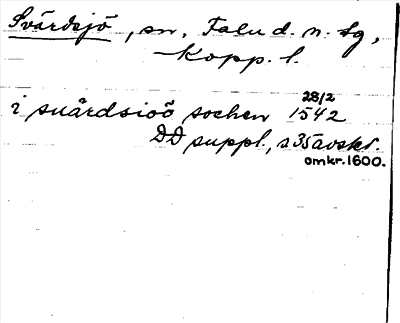 Svärdsjö, sn, Falu d. n. lg,
Kopp. l.
28/2
i suärdsioö sochen 1542
DD suppl., s 35 avskr.
omkr. 1600.